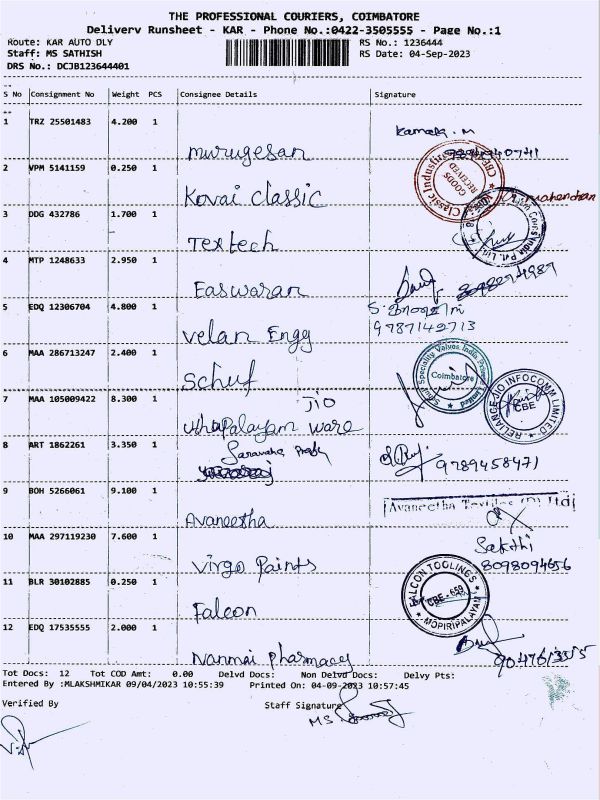 THE PROFESSIONAL COURIERS, COIMBATORE
Delivery Runsheet - KAR - Phone No.:0422-3505555 - Page No.:1
Route: KAR AUTO DLY RS No.: 1236444
Staff: MS SATHISH RS Date: 04-Sep-2023
DRS No.: DCJB123644401
S No Consignment No Weight PCS Consignee Details Signature
1 TRZ 25501483 4.200 1
murugesan
2 VPM 5141159 0.250 1
Kovai Classic
Classic Industri
GOODS RECEIVED
3 DDG 432786 1.700 1
Textech
4 MTP 1248633 2.950 1
Easwaran
5 EDQ 12306704 4.800 1
9787142713
velan Engg
6 MAA 286713247 2.400 1
Speciality Valves India Private Limited
Coimbatore
schuf
7 MAA 105009422 8.300 1
JIO
RELIANCE JIO INFOCOMM LIMITED
CBE
uthapalayam ware
8 ART 1862261 3.350 1
9789458471
9 BOH 5266061 9.100 1
Avaneetha Textiles (P) Ltd
Avaneetha
10 MAA 297119230 7.600 1
Sakthi
8098094656
virgo Paints
11 BLR 30102885 0.250 1
FALCON TOOLINGS
CBE - 659
MOPIRIPALAYAM
Falcon
12 EDQ 17535555 2.000 1
Nanmai Pharmacy
Tot Docs: 12 Tot COD Amt: 0.00 Delvd Docs: Non Delvd Docs: Delvy Pts:
Entered By :MLAKSHMIKAR 09/04/2023 10:55:39 Printed On: 04-09-2023 10:57:45
Verified By Staff Signature
MS